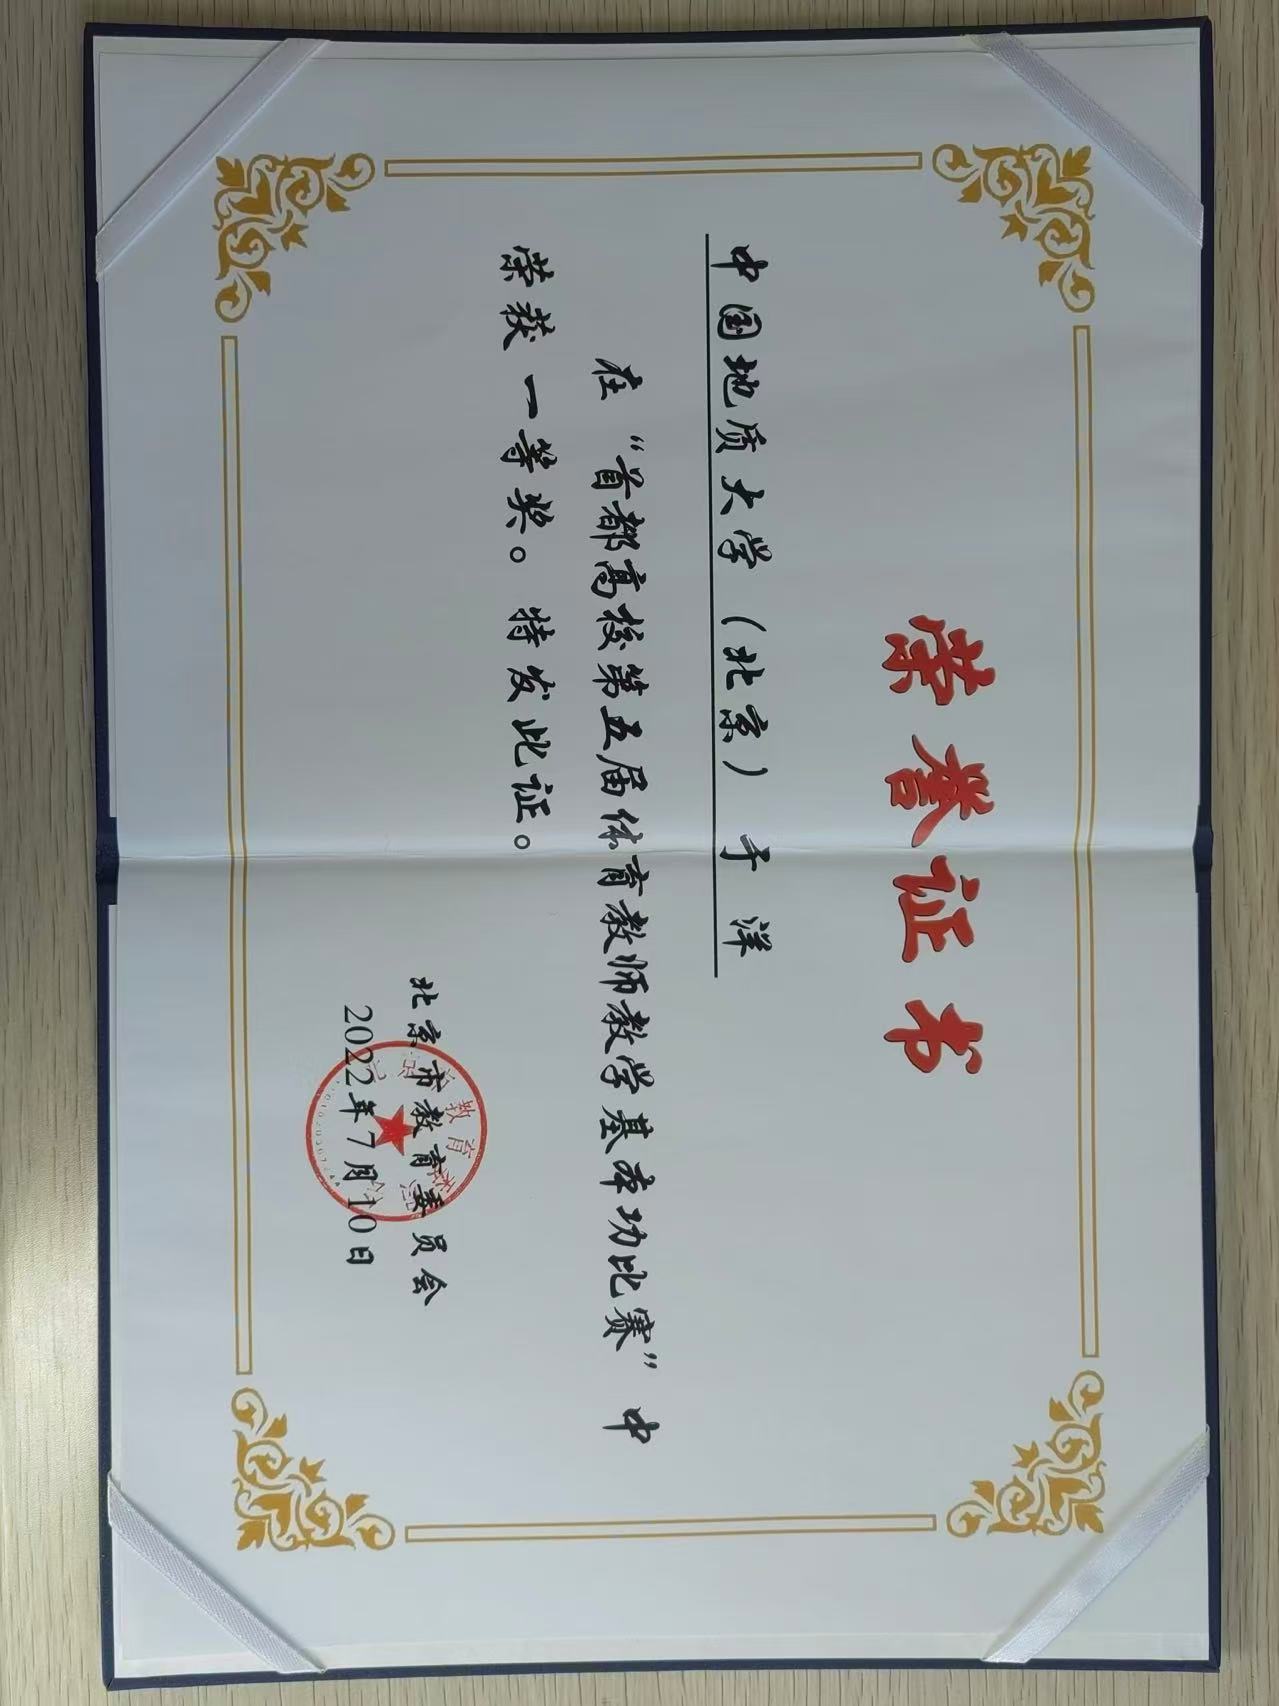 荣誉证书
中国地质大学（北京） 于 洋
在“首都高校第五届体育教师教学基本功比赛”中
荣获一等奖。特发此证。
北京市教育委员会
2022年7月10日